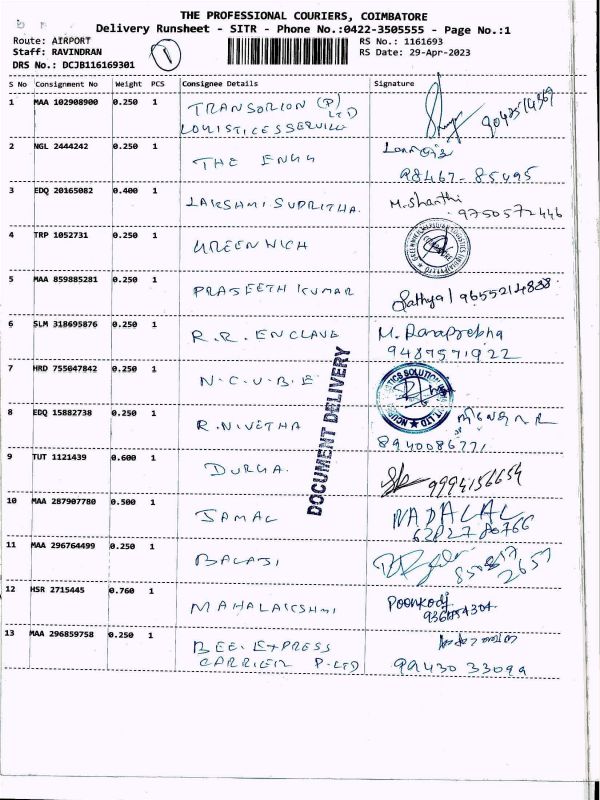 THE PROFESSIONAL COURIERS, COIMBATORE
Delivery Runsheet - SITR - Phone No.:0422-3505555 - Page No.:1
Route: AIRPORT
RS No.: 1161693
Staff: RAVINDRAN
RS Date: 29-Apr-2023
DRS No.: DCJB116169301
1
S No Consignment No Weight PCS Consignee Details Signature
1 MAA 102908900 0.250 1 TRANSORION (P) LTD
LOUISTICES SERVICE
2 NGL 2444242 0.250 1 THE ENGG
98467-85495
3 EDQ 20165082 0.400 1 LAKSHMI SUPRITHA. M. Shanthi
9750572446
4 TRP 1052731 0.250 1 GREENWICH
5 MAA 859885281 0.250 1 PRASEETH KUMAR Sathya / 9655214838
6 SLM 318695876 0.250 1 R.R. ENCLAVE M. Ranaprebha
9487571922
7 HRD 755047842 0.250 1 N.C.U.B.E
8 EDQ 15882738 0.250 1 R.NIVETHA
8940086771
9 TUT 1121439 0.600 1 DURGA. 9994156654
10 MAA 287907780 0.500 1 JAMAL NADALAL
62827 80766
11 MAA 296764499 0.250 1 BALAJI
12 HSR 2715445 0.760 1 MAHALAKSHMI Poonkodi
13 MAA 296859758 0.250 1 BEE. EXPRESS
CARRIER P-LTD 99430 33099
DOCUMENT DELIVERY